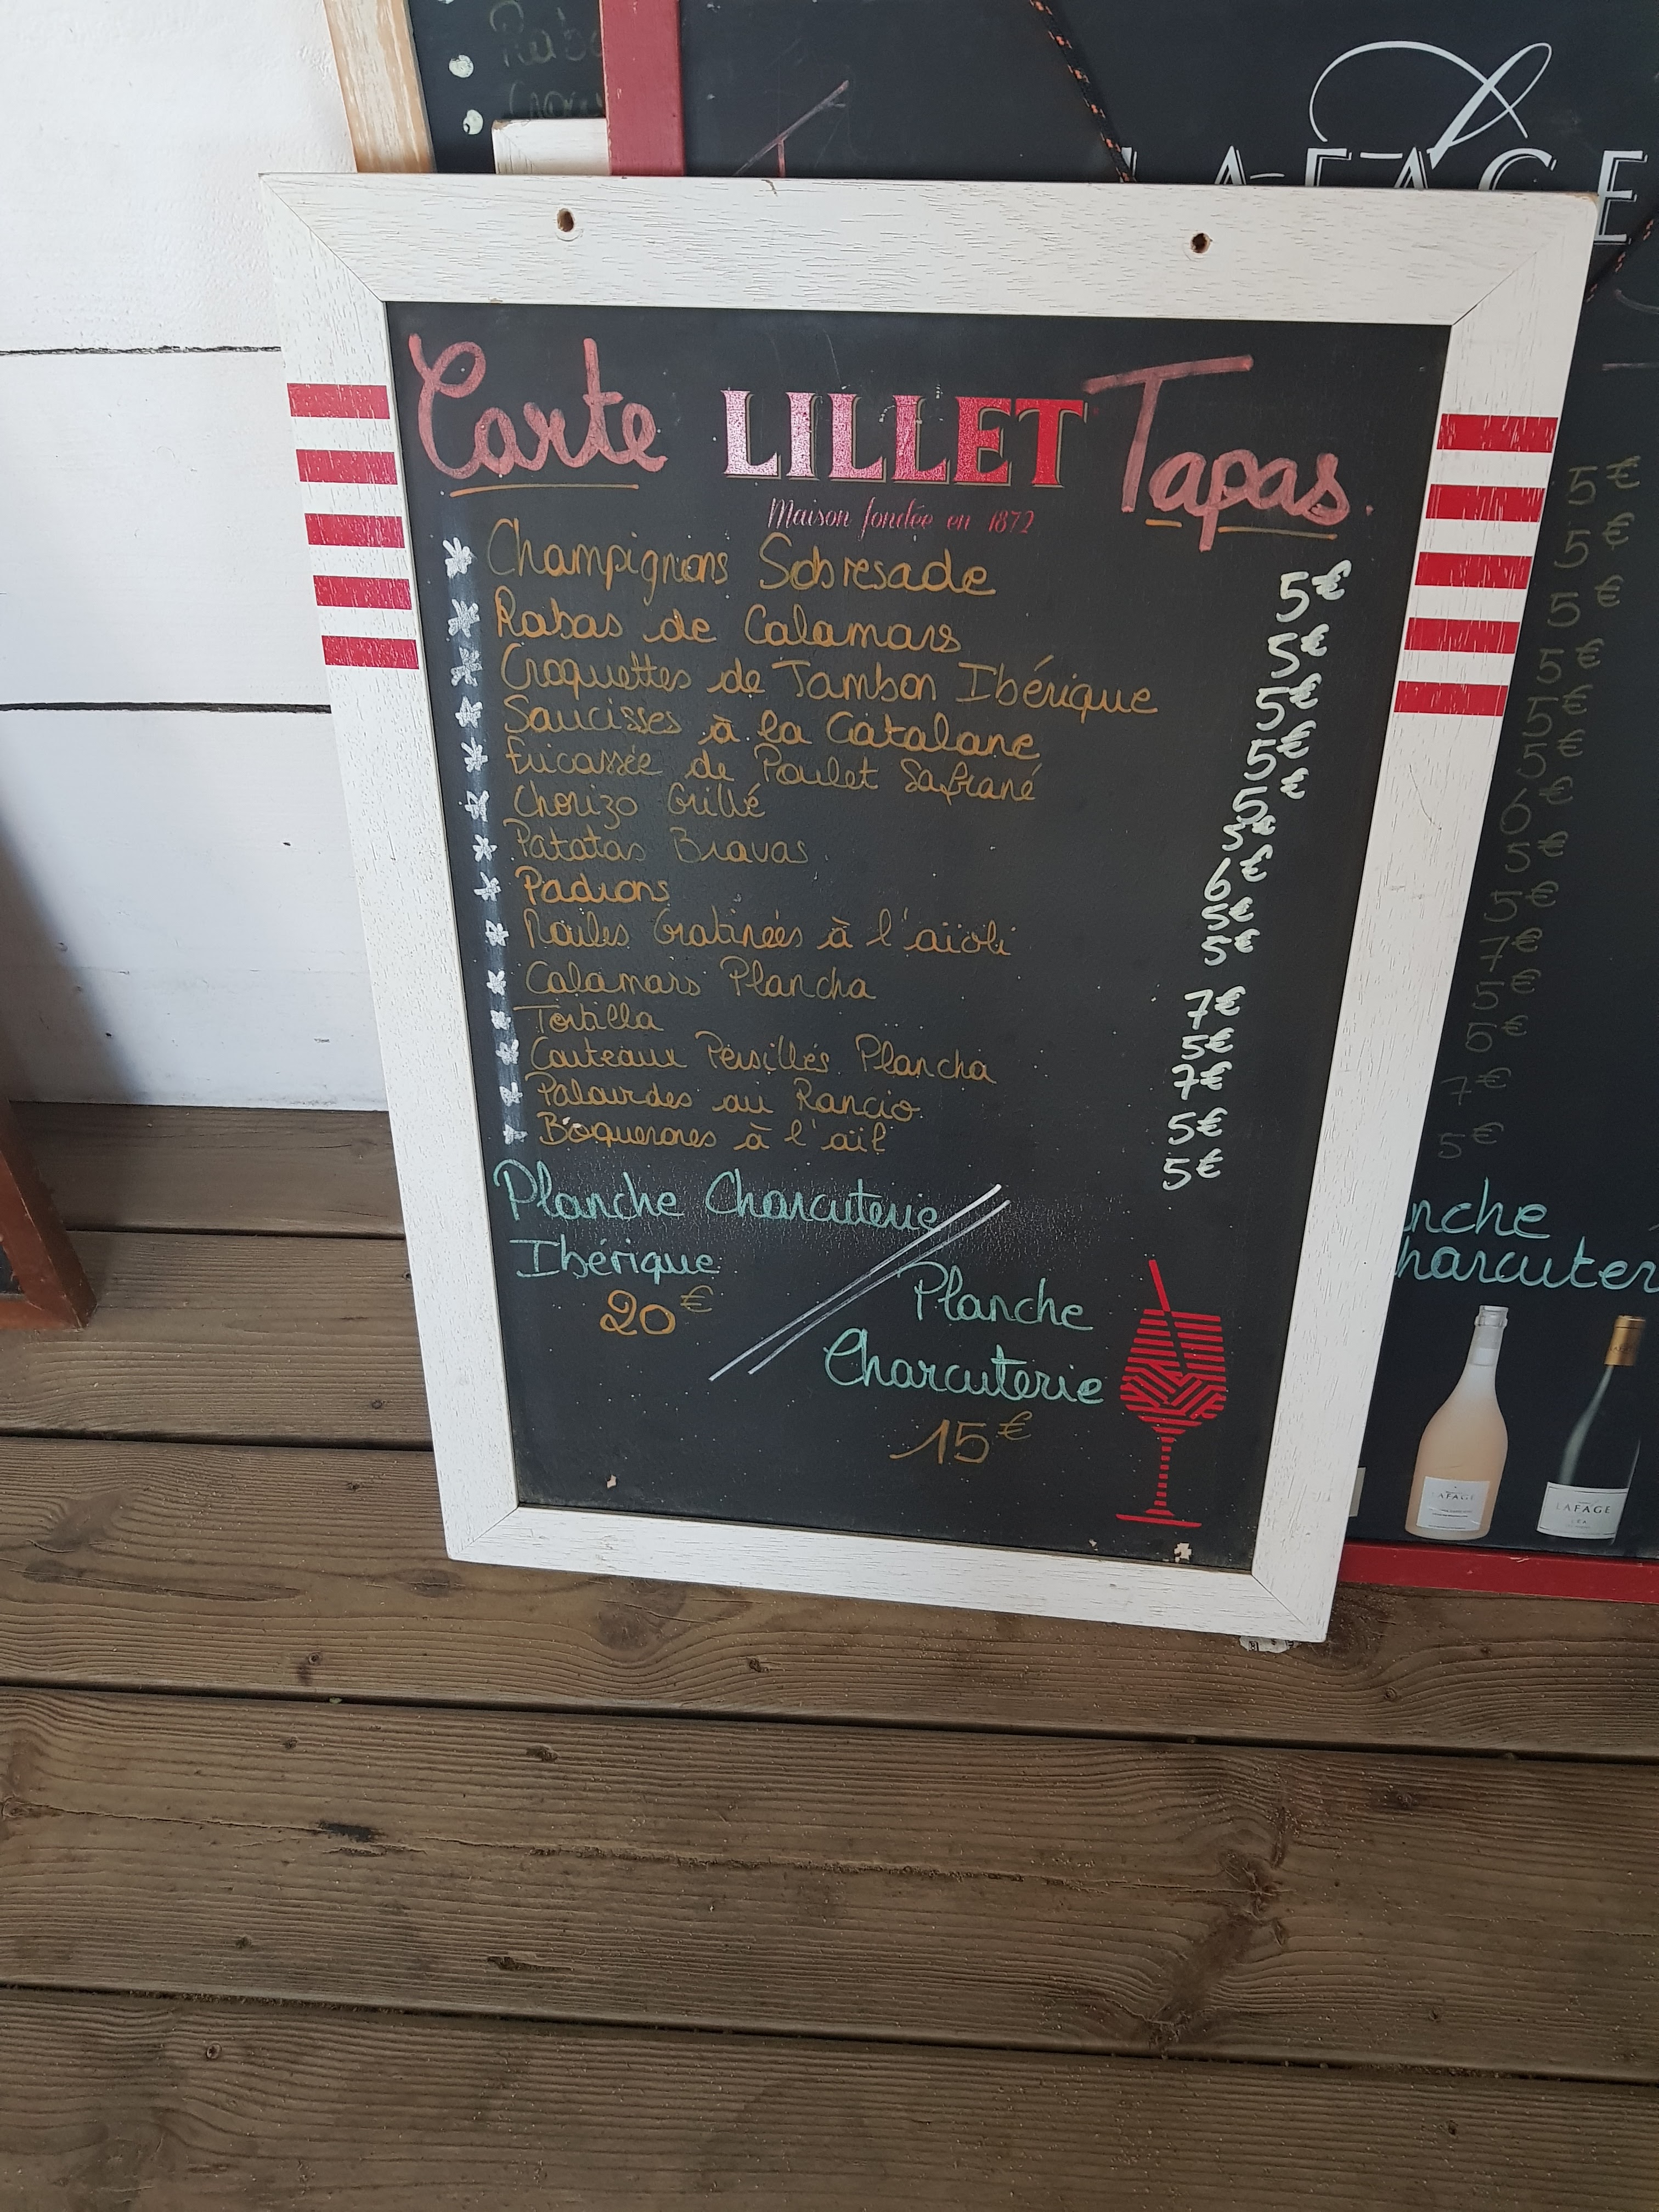 Rab
LAFAGE
Carte LILLET Tapas
Maison fondée en 1872
Champignons Sobresade 5€
Rabas de Calamars 5€
Croquettes de Jambon Ibérique 5€
Saucisses à la Catalane 5€
Fricassée de Poulet Safrané 5€
Chorizo Grillé 5€
Patatas Bravas 6€
Padrons 5€
Moules Gratinées à l'aïoli 5€
Calamars Plancha 7€
Tortilla 5€
Couteaux Persillés Plancha 7€
Palourdes au Rancio 5€
Boquerones à l'ail 5€
Planche Charcuterie
Ibérique
20€
Planche
Charcuterie
15€
5€
5€
5€
5€
5€
5€
6€
5€
5€
7€
5€
5€
7€
5€
nche
harcuter
LAFAGE
LAFAGE
LEA